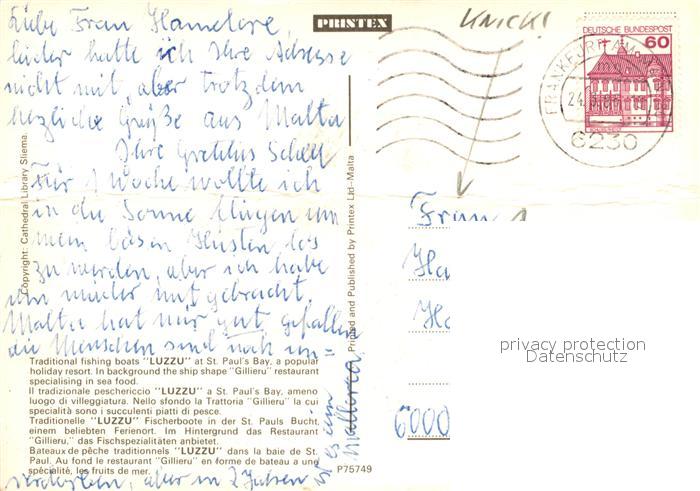 PRINTEX
KNICK!
DEUTSCHE BUNDESPOST
60
FRANKFURT AM
6230
Liebe Frau Hannelore,
leider hatte ich Ihre Adresse
nicht mit, aber trotzdem
herzliche Grüße aus Malta
Ihre
Für 1 Woche wollte ich
in die Sonne fliegen um
mein bösen Husten los
zu werden, aber ich habe
ihn wieder mitgebracht.
Malta hat mir gut gefallen
die Menschen sind noch un=
verdorben, aber in 2 Jahren
ist es ein
Mallorca.
Frau
Ha
6000
privacy protection
Datenschutz
Copyright: Cathedral Library Sliema.
Printed and Published by Printex Ltd-Malta
Traditional fishing boats "LUZZU" at St. Paul's Bay, a popular
holiday resort. In background the ship shape "Gillieru" restaurant
specialising in sea food.
Il tradizionale peschericcio "LUZZU" a St. Paul's Bay, ameno
luogo di villeggiatura. Nello sfondo la Trattoria "Gillieru" la cui
specialità sono i succulenti piatti di pesce.
Traditionelle "LUZZU" Fischerboote in der St. Pauls Bucht,
einem beliebten Ferienort. Im Hintergrund das Restaurant
"Gillieru", das Fischspezialitäten anbietet.
Bateaux de pêche traditionnels "LUZZU" dans la baie de St.
Paul. Au fond le restaurant "Gillieru" en forme de bateau a une
spécialité, les fruits de mer.
P75749